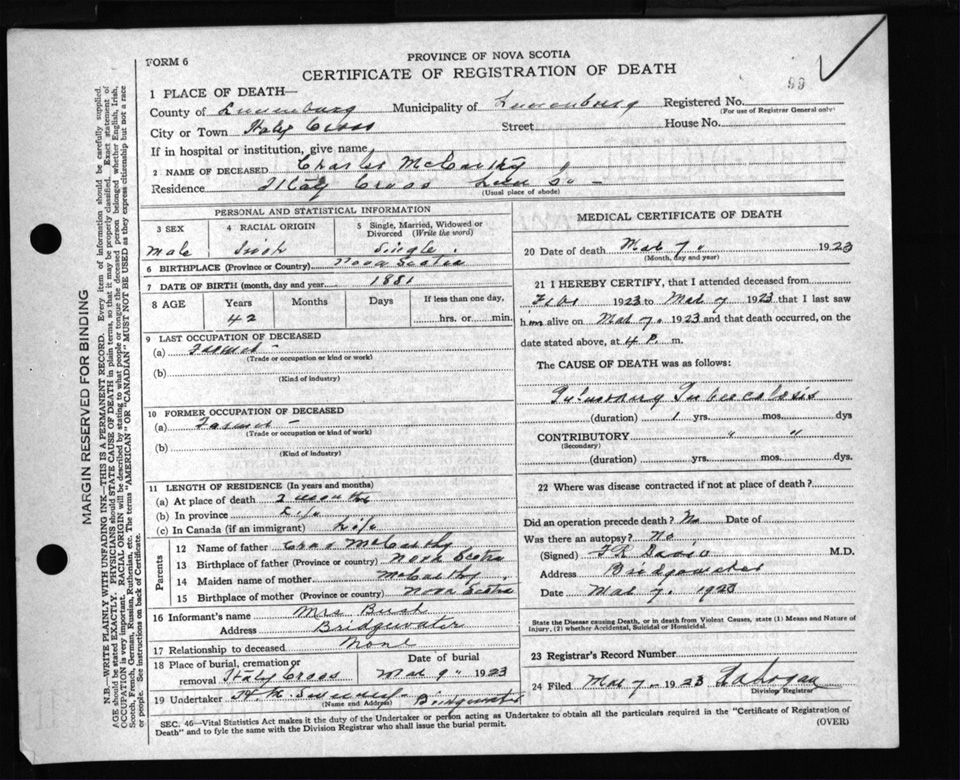 FORM 6
PROVINCE OF NOVA SCOTIA
CERTIFICATE OF REGISTRATION OF DEATH
99
1 PLACE OF DEATH—
County of Lunenburg Municipality of Lunenburg Registered No.
(For use of Registrar General only)
City or Town Italy Cross Street House No.
If in hospital or institution, give name
2 NAME OF DECEASED McCarthy
Residence Italy Cross Lun Co -
(Usual place of abode)
PERSONAL AND STATISTICAL INFORMATION
3 SEX 4 RACIAL ORIGIN 5 Single, Married, Widowed or Divorced (Write the word)
Male Irish Single
6 BIRTHPLACE (Province or Country) Nova Scotia
7 DATE OF BIRTH (month, day and year) 1881
8 AGE Years Months Days If less than one day,
42 hrs. or min.
9 LAST OCCUPATION OF DECEASED
(a) Farmer -
(Trade or occupation or kind of work)
(b)
(Kind of industry)
10 FORMER OCCUPATION OF DECEASED
(a) Farmer -
(Trade or occupation or kind of work)
(b)
(Kind of industry)
11 LENGTH OF RESIDENCE (In years and months)
(a) At place of death 2 months
(b) In province Life
(c) In Canada (if an immigrant) Life
Parents
12 Name of father Chas McCarthy
13 Birthplace of father (Province or country) Nova Scotia
14 Maiden name of mother McCarthy
15 Birthplace of mother (Province or country) Nova Scotia
16 Informant's name Mrs Bush
Address Bridgewater
17 Relationship to deceased None
18 Place of burial, cremation or removal Italy Cross Date of burial Mar 9" 1923
19 Undertaker Bridgewater
(Name and Address)
MEDICAL CERTIFICATE OF DEATH
20 Date of death Mar 7" 1923
(Month, day and year)
21 I HEREBY CERTIFY, that I attended deceased from
Feb 1923 to Mar 7 1923 that I last saw
him alive on Mar 7. 1923 and that death occurred, on the
date stated above, at 4 P. m.
The CAUSE OF DEATH was as follows:
Pulmonary Tuberculosis
(duration) 1 yrs. mos. dys
CONTRIBUTORY " "
(Secondary)
(duration) yrs. mos. dys.
22 Where was disease contracted if not at place of death?
Did an operation precede death? No Date of
Was there an autopsy? No
(Signed) F R Davis M.D.
Address Bridgewater
Date Mar 7, 1923
State the Disease causing Death, or in death from Violent Causes, state (1) Means and Nature of
Injury, (2) whether Accidental, Suicidal or Homicidal.
23 Registrar's Record Number
24 Filed Mar 7 - 1923
Division Registrar
SEC. 46—Vital Statistics Act makes it the duty of the Undertaker or person acting as Undertaker to obtain all the particulars required in the "Certificate of Registration of
Death" and to fyle the same with the Division Registrar who shall issue the burial permit. (OVER)
MARGIN RESERVED FOR BINDING
N.B.—WRITE PLAINLY WITH UNFADING INK—THIS IS A PERMANENT RECORD. Every item of information should be carefully supplied.
AGE should be stated EXACTLY. PHYSICIANS should STATE CAUSE OF DEATH in plain terms, so that it may be properly classified. Exact statement of
OCCUPATION is very important. RACIAL ORIGIN will be described by stating to what people or tongue the deceased person belonged whether English, Irish,
Scotch, French, German, Russian, Ruthenian, etc. The terms "AMERICAN" OR "CANADIAN" MUST NOT BE USED as they express citizenship but not a race
or people. See instructions on back of Certificate.